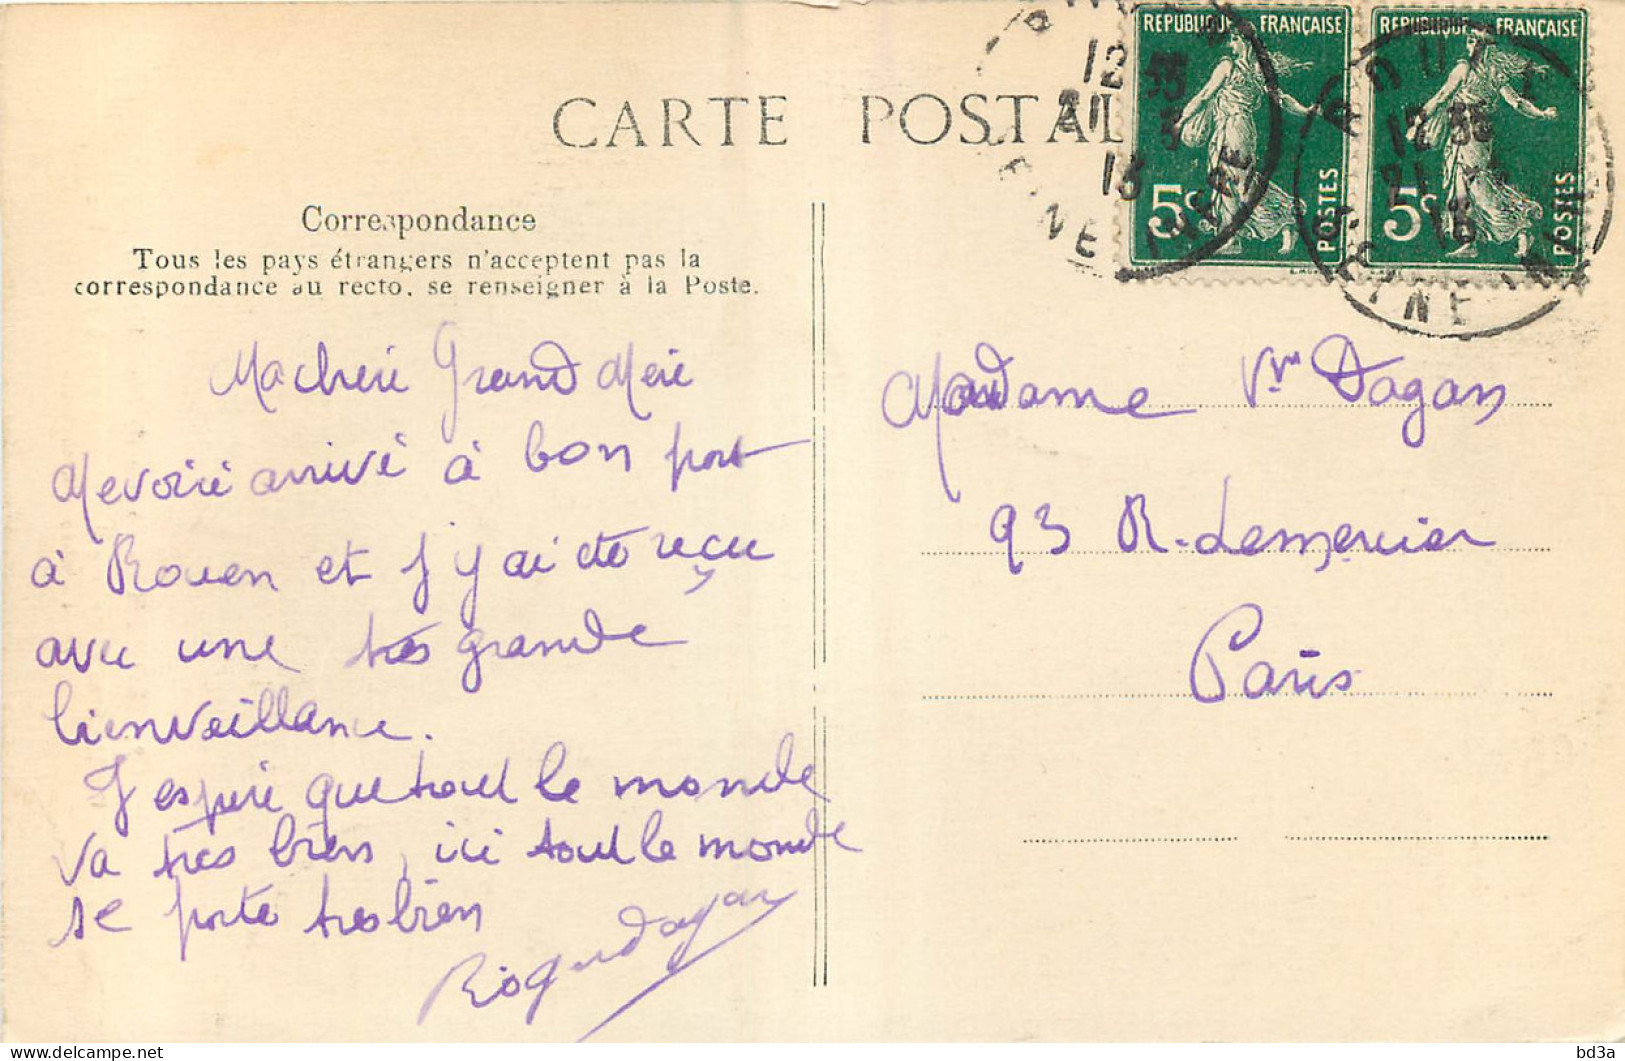 CARTE POSTAL
REPUBLIQUE FRANÇAISE
5c POSTES
REPUBLIQUE FRANÇAISE
5c POSTES
12 35
21 3
13
SEINE INFRE
12 35
21
13
SEINE INF
Correspondance
Tous les pays étrangers n'acceptent pas la
correspondance au recto, se renseigner à la Poste.
Ma cherie Grand Mere
Me voici arrivé à bon port
à Rouen et j'y ai été reçu
avec une très grande
bienveillance.
J'espere que tout le monde
va tres bien, ici tout le monde
se porte tres bien
Dagan
Madame Vve Dagan
93 R. Lemercier
Paris
bd3a